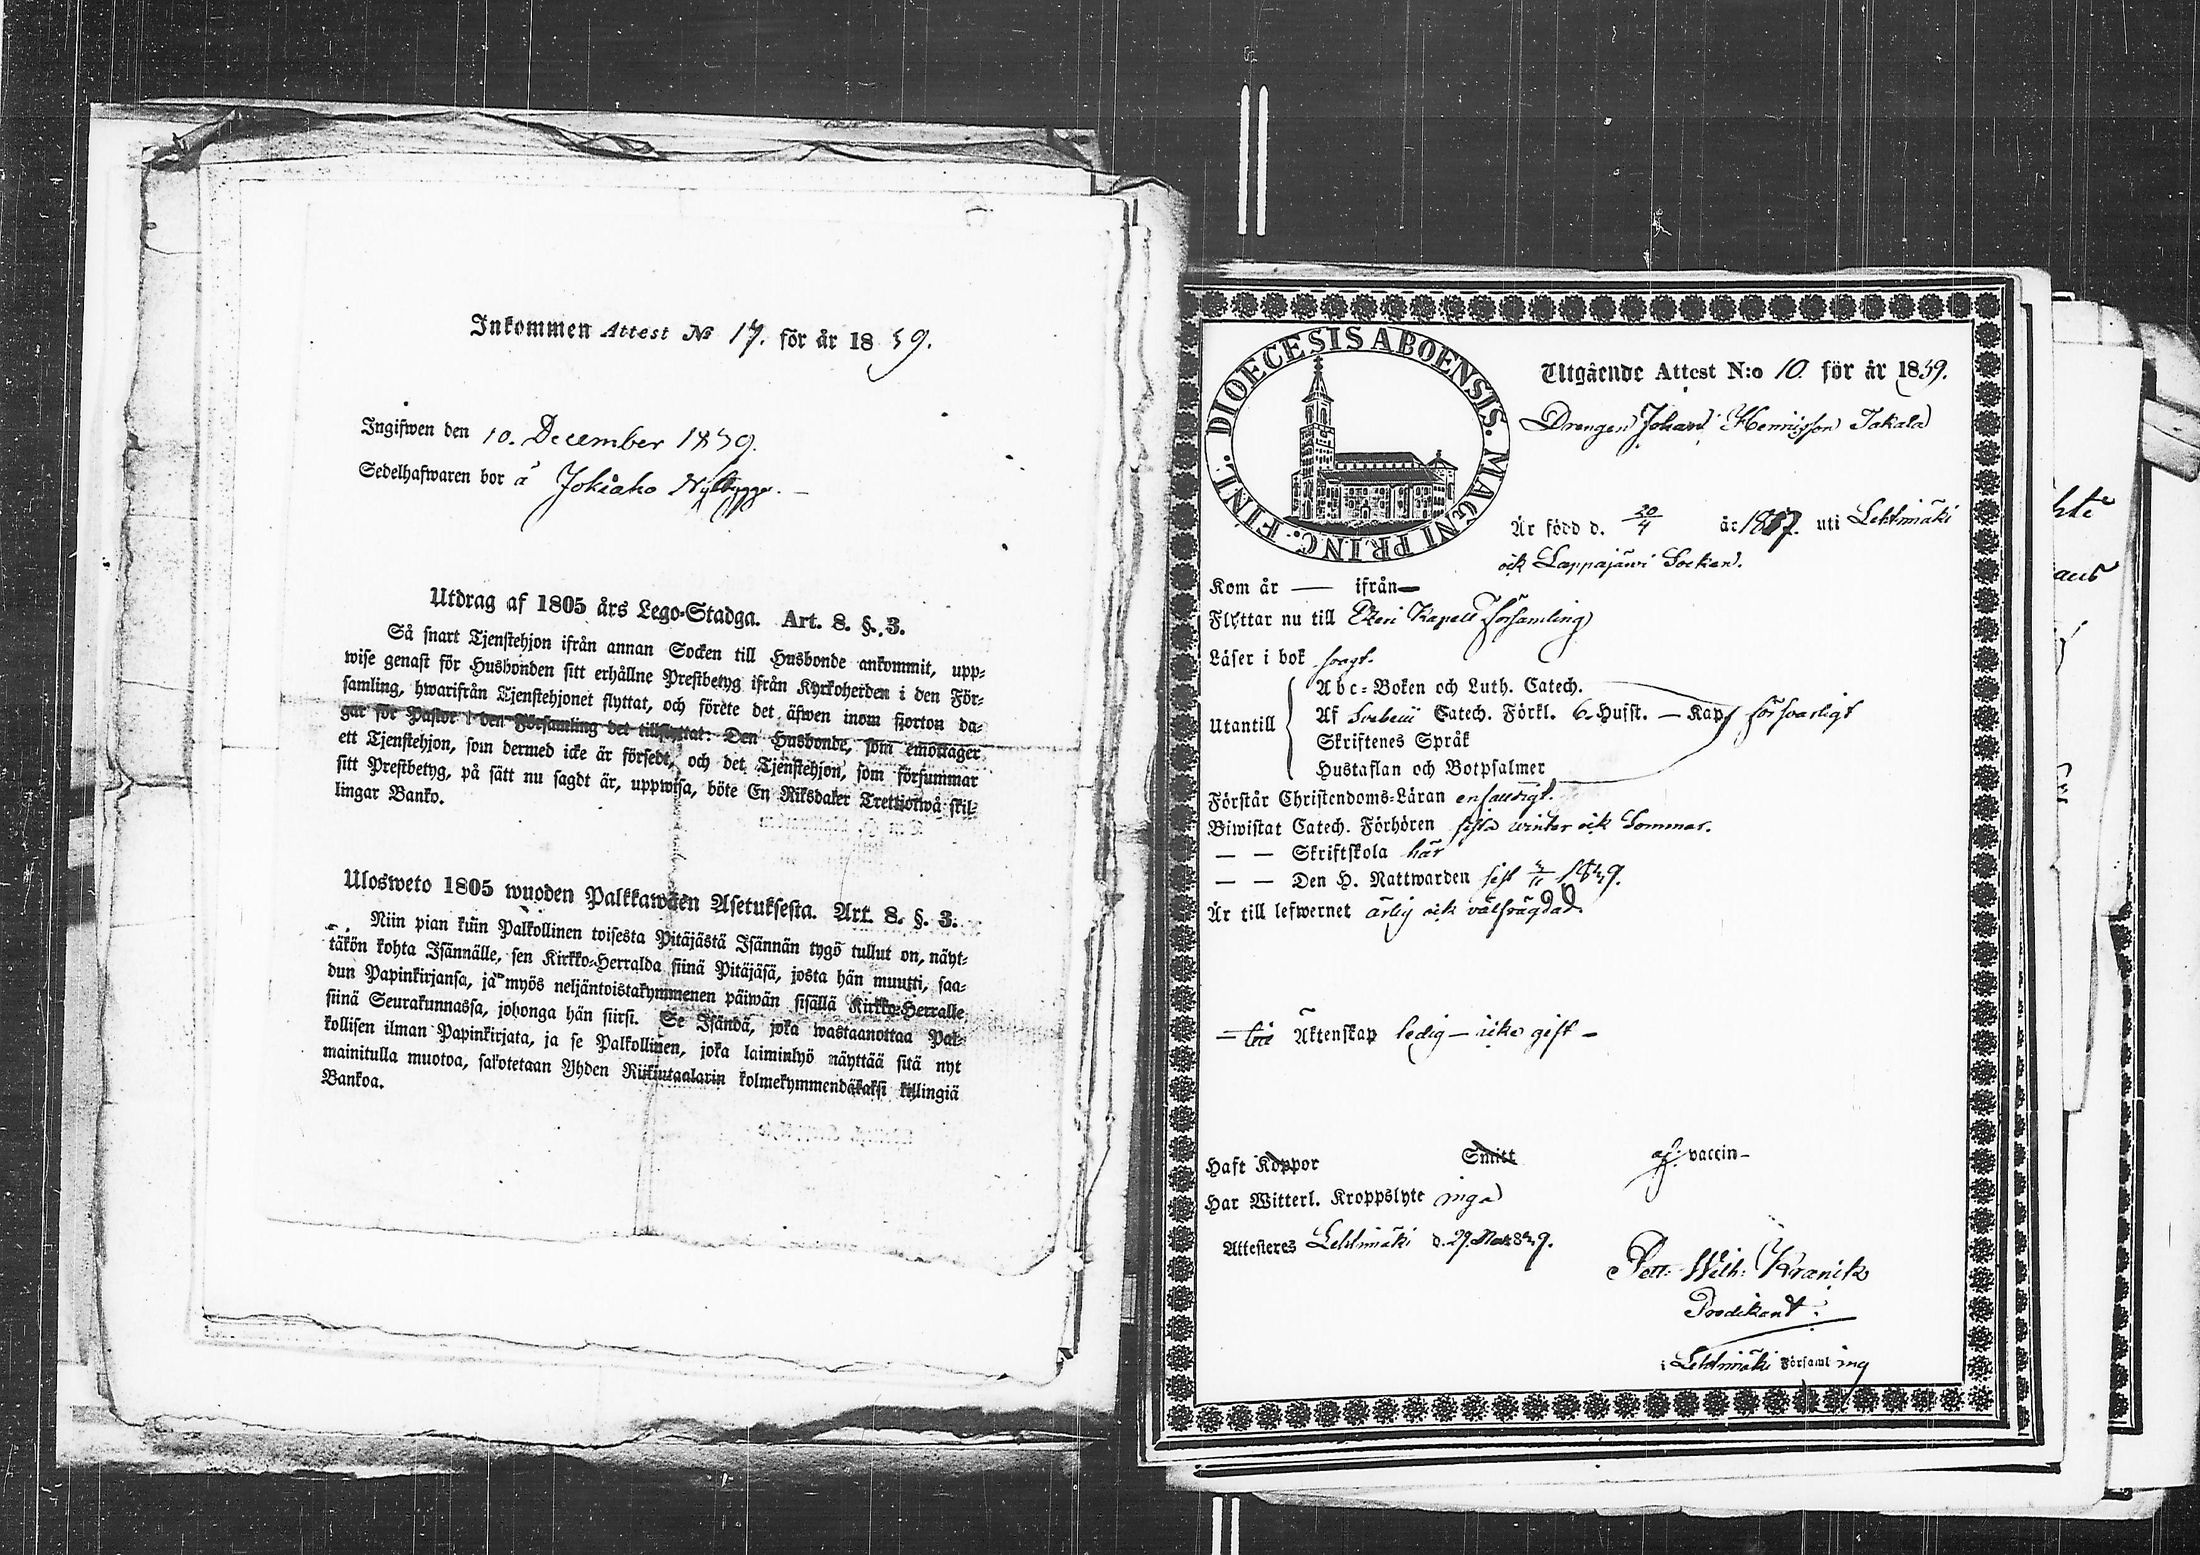 Inkommen Attest No 17. för år 1839.
Ingifwen den 10. December 1839.
Sedelhafwaren bor å Jokiaho Nybygge.
Utdrag af 1805 års Lego-Stadga. Art. 8. §. 3.
Så snart Tjenstehjon ifrån annan Socken till Husbonde ankommit, upp-
wise genast för Husbonden sitt erhållne Prestbetyg ifrån Kyrkoherden i den För-
samling, hwarifrån Tjenstehjonet flyttat, och förete det äfwen inom fjorton da-
gar för Pastor i den Församling det tillflyttat: Den Husbonde, som emottager
ett Tjenstehjon, som dermed icke är försedt, och det Tjenstehjon, som försummar
sitt Prestbetyg, på sätt nu sagdt är, uppwisa, böte En Riksdaler Trettiotwå skil-
lingar Banko.
Ulosweto 1805 wuoden Palkkawäen Asetuksesta. Art. 8. §. 3.
Niin pian kuin Palkollinen toisesta Pitäjästä Isännän tygö tullut on, näyt-
täkön kohta Isännälle, sen Kirkko-Herralda siinä Pitäjäsä, josta hän muutti, saa-
dun Papinkirjansa, ja myös neljäntoistakymmenen päiwän sisällä Kirkko-Herralle
siinä Seurakunnassa, johonga hän siirsi. Se Isändä, joka wastaanottaa Pal-
kollisen ilman Papinkirjata, ja se Palkollinen, joka laiminlyö näyttää sitä nyt
mainitulla muotoa, sakotetaan Yhden Riikintaalarin kolmekymmendäkaksi killingiä
Bankoa.
DIOECESIS ABOENSIS. MAGNI PRINC. FINL.
Utgående Attest N:o 10. för år 1839.
Drengen Johan Henricsson Takala
Är född d. 20/4 år 1817. uti Lehtimäki
ock Lappajärvi Socken.
Kom år — ifrån —
Flyttar nu till Etseri Kapell Församling
Läser i bok svagt.
Abc-Boken och Luth. Catech.
Utantill
Af Svebelii Catech. Förkl. 6. Hufst. — Kap. försvarligt
Skriftenes Språk
Hustaflan och Botpsalmer
Förstår Christendoms-Läran enfaldigt.
Biwistat Catech. Förhören sista winter ock Sommar.
— — Skriftskola här
— — Den H. Nattwarden sist 1839.
Är till lefwernet ärlig ock välfrägdad.
— till Äktenskap ledig — icke gift —
Haft Koppor Smitt af: vaccin —
Har Witterl. Kroppslyte inga
Attesteres Lehtimäki d. 29. Nov: 839.
Pett: Wilh: Kranck
Predikant.
i Lehtimäki Församling